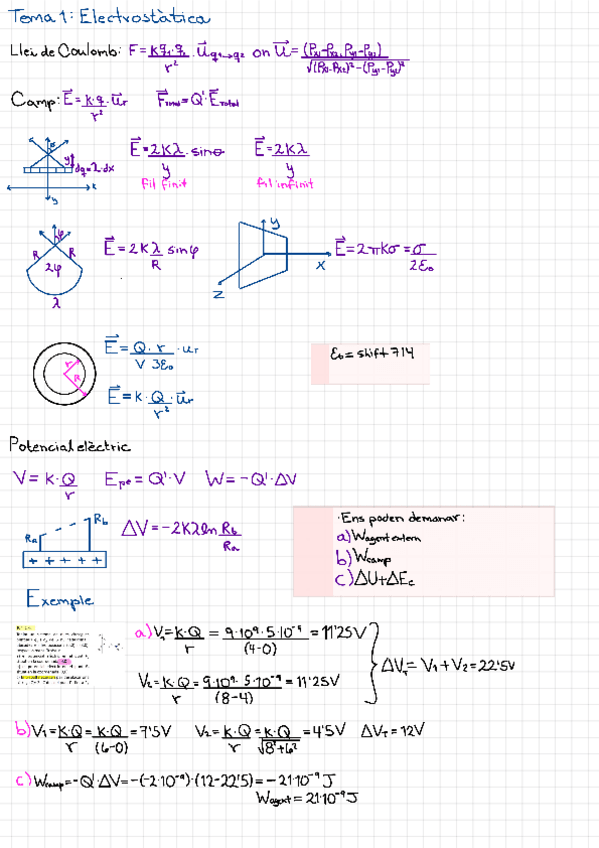 Tema 1: Electrostàtica
Llei de Coulomb: F = K·q₁·q₂/r² · u⃗ q1→q2 on u⃗ = (Px1-Px2, Py1-Py2)/√((Px1-Px2)²-(Py1-Py2)²
Camp: E⃗ = K·q/r² · u⃗r F⃗total = Q'·E⃗total
y dq=λ·dx x y
E⃗ = 2Kλ/y · sinθ E⃗ = 2Kλ/y
fil finit fil infinit
φ R R 2φ λ
E⃗ = 2Kλ/R sinφ
y x z
E⃗ = 2πKσ = σ/2ε₀
r R
E⃗ = Q·r/V 3ε₀ · ur
E⃗ = K·Q/r² · u⃗r
ε₀ = shift 714
Potencial elèctric
V = K·Q/r Epe = Q'·V W = -Q'·ΔV
Ra Rb + + + + +
ΔV = -2Kλ ln Rb/Ra
·Ens poden demanar:
a) Wagent extern
b) Wcamp
c) ΔU+ΔEc
Exemple
a) V₁ = K·Q/r = 9·10⁹·5·10⁻⁹/(4-0) = 11'25V
V₂ = K·Q/r = 9·10⁹·5·10⁻⁹/(8-4) = 11'25V
ΔVT = V₁+V₂ = 22'5V
b) V₁ = K·Q/r = K·Q/(6-0) = 7'5V V₂ = K·Q/r = K·Q/√8²+6² = 4'5V ΔVT = 12V
c) Wcamp = -Q'·ΔV = -(-2·10⁻⁹)·(12-22'5) = -21·10⁻⁹J
Wagent = 21·10⁻⁹J